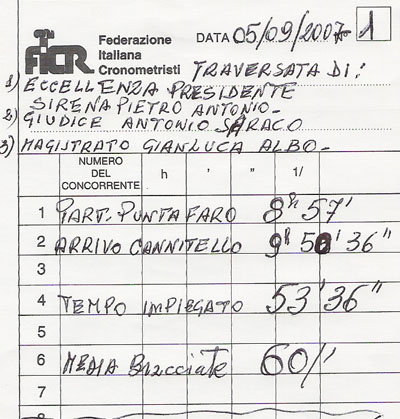 FICR Federazione Italiana Cronometristi
DATA 05/09/2007 1
TRAVERSATA DI:
1) ECCELLENZA PRESIDENTE
SIRENA PIETRO ANTONIO-
2) GIUDICE ANTONIO SARACO
3) MAGISTRATO GIANLUCA ALBO-
NUMERO DEL CONCORRENTE h ' " 1/
1 PART. PUNTA FARO 8h 57'
2 ARRIVO CANNITELLO 9h 50' 36"
3
4 TEMPO IMPIEGATO 53'36"
5
6 MEDIA Bracciate 60/'
7